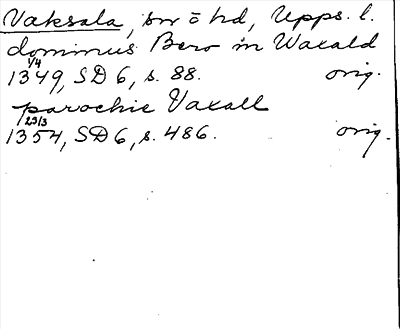 Vaksala, sn o hd, Upps. l.
dominus Bero in Waxald
1/4
1349, SD 6, s. 88. orig.
parochie Vaxall
23/3
1354, SD 6, s. 486. orig.